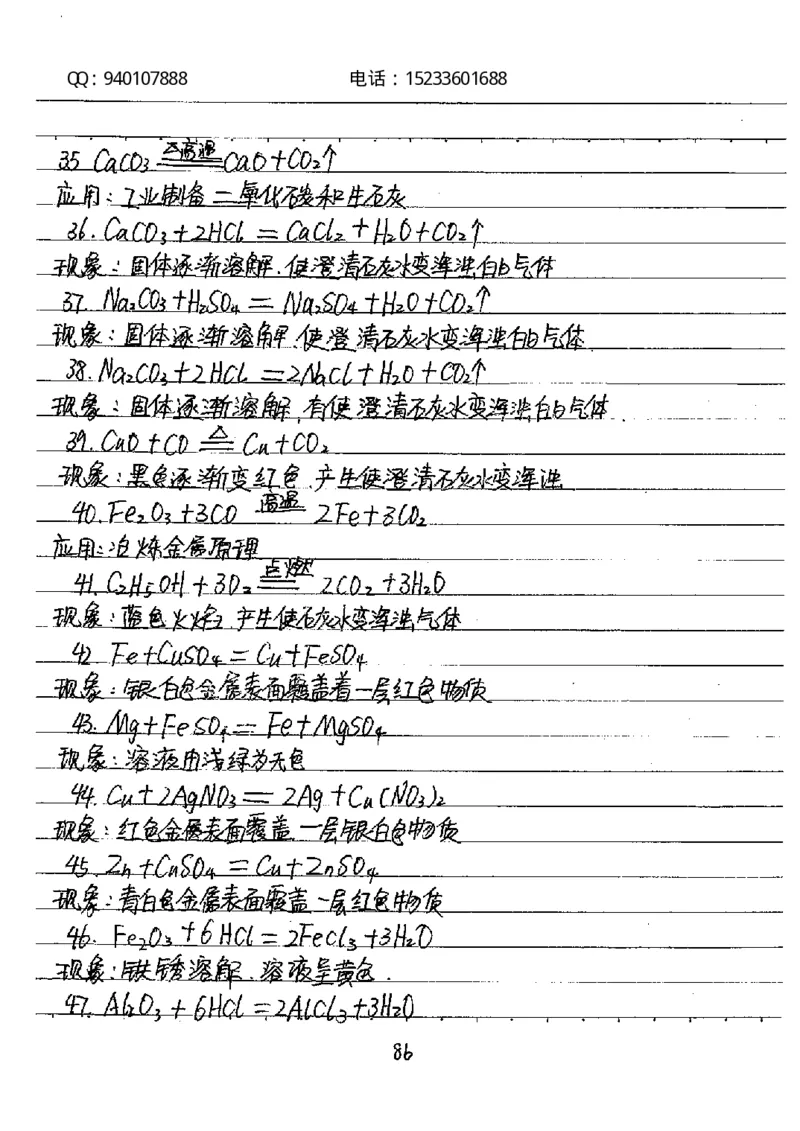 QQ：940107888 电话：15233601688
35 CaCO₃ ≜高温 CaO+CO₂↑
应用：工业制备二氧化碳和生石灰
36. CaCO₃+2HCl = CaCl₂+H₂O+CO₂↑
现象：固体逐渐溶解、使澄清石灰水变浑浊白的气体
37. Na₂CO₃+H₂SO₄ = Na₂SO₄+H₂O+CO₂↑
现象：固体逐渐溶解、使澄清石灰水变浑浊白的气体
38. Na₂CO₃+2HCl =2NaCl+H₂O+CO₂↑
现象：固体逐渐溶解，有使澄清石灰水变浑浊白的气体
39. CuO+CO △= Cu+CO₂
现象：黑色逐渐变红色、产生使澄清石灰水变浑浊
40. Fe₂O₃+3CO 高温 2Fe+3CO₂
应用：冶炼金属原理
41. C₂H₅OH+3O₂ 点燃= 2CO₂+3H₂O
现象：蓝色火焰、产生使石灰水变浑浊气体
42 Fe+CuSO₄=Cu+FeSO₄
现象：银白色金属表面覆盖着一层红色物质
43. Mg+FeSO₄= Fe+MgSO₄
现象：溶液由浅绿为无色
44. Cu+2AgNO₃= 2Ag+Cu(NO₃)₂
现象：红色金属表面覆盖一层银白色物质
45. Zn+CuSO₄=Cu+ZnSO₄
现象：青白色金属表面覆盖一层红色物质
46. Fe₂O₃+6HCl=2FeCl₃+3H₂O
现象：铁锈溶解、溶液呈黄色.
47. Al₂O₃+6HCl=2AlCl₃+3H₂O
86